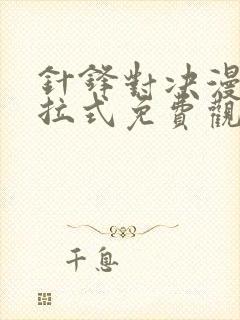 針鋒對決漫
拉式免費觀
千息